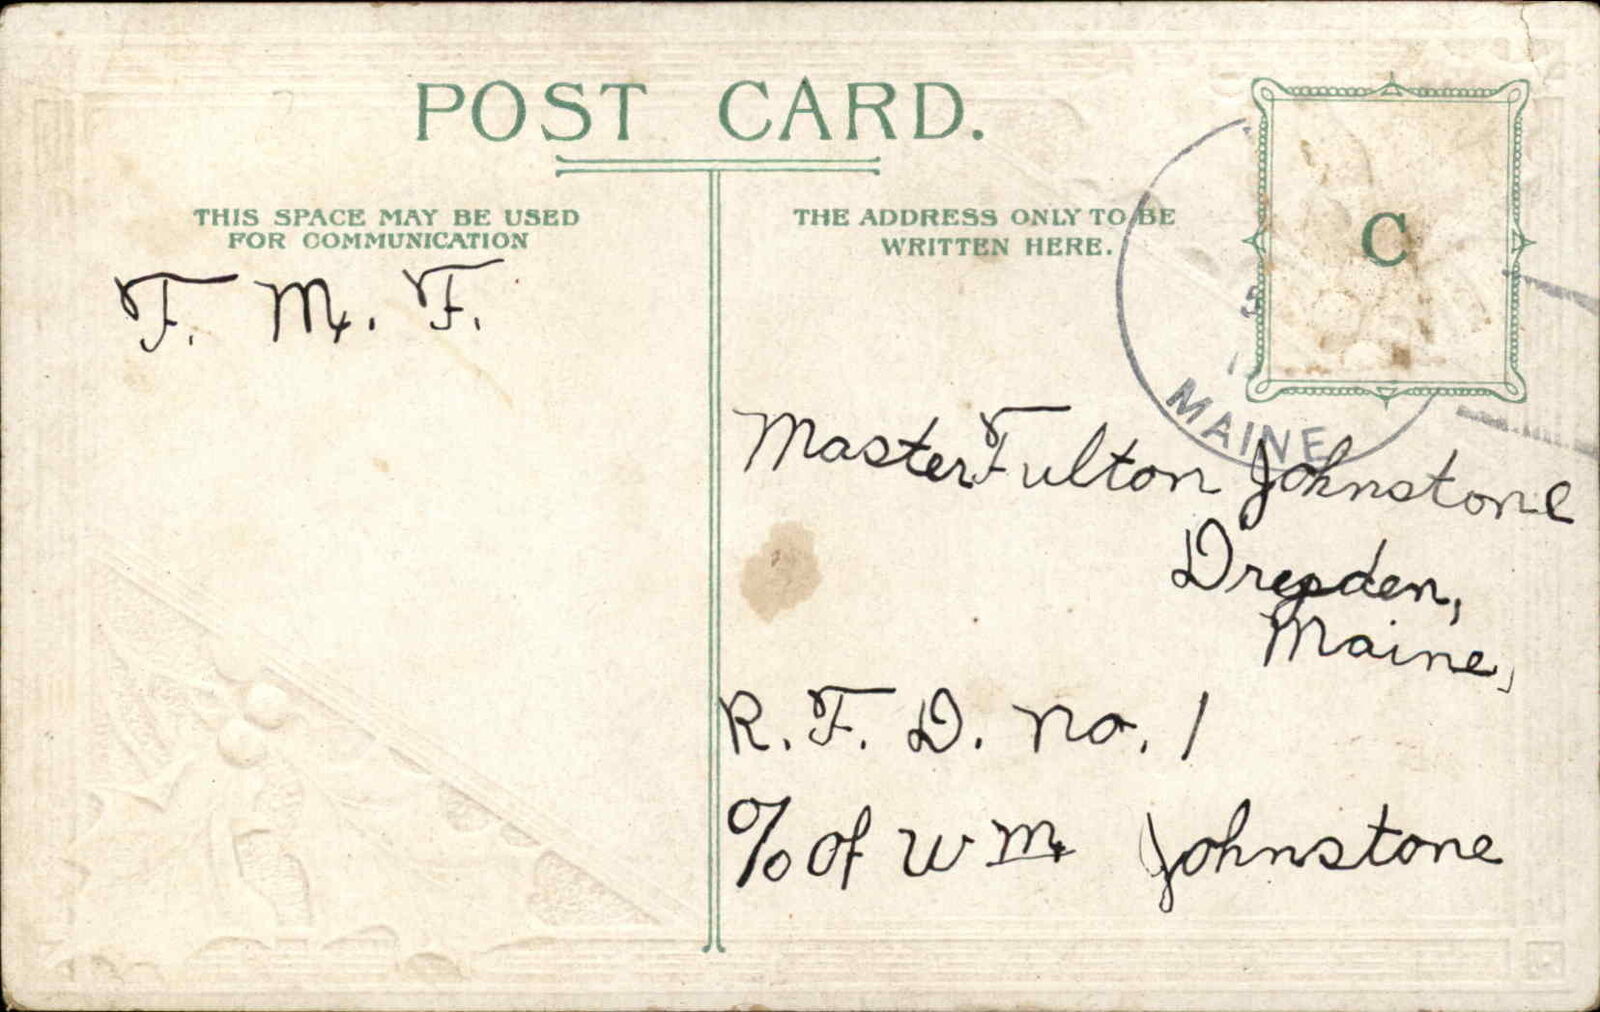 POST CARD.
THIS SPACE MAY BE USED
FOR COMMUNICATION
T. M. F.
THE ADDRESS ONLY TO BE
WRITTEN HERE.
C
MAINE
Master Fulton Johnstone
Dresden,
Maine,
R. F. D. No. 1
% of Wm Johnstone